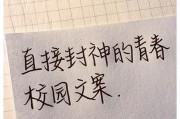 直接封神的青春
校园文案.